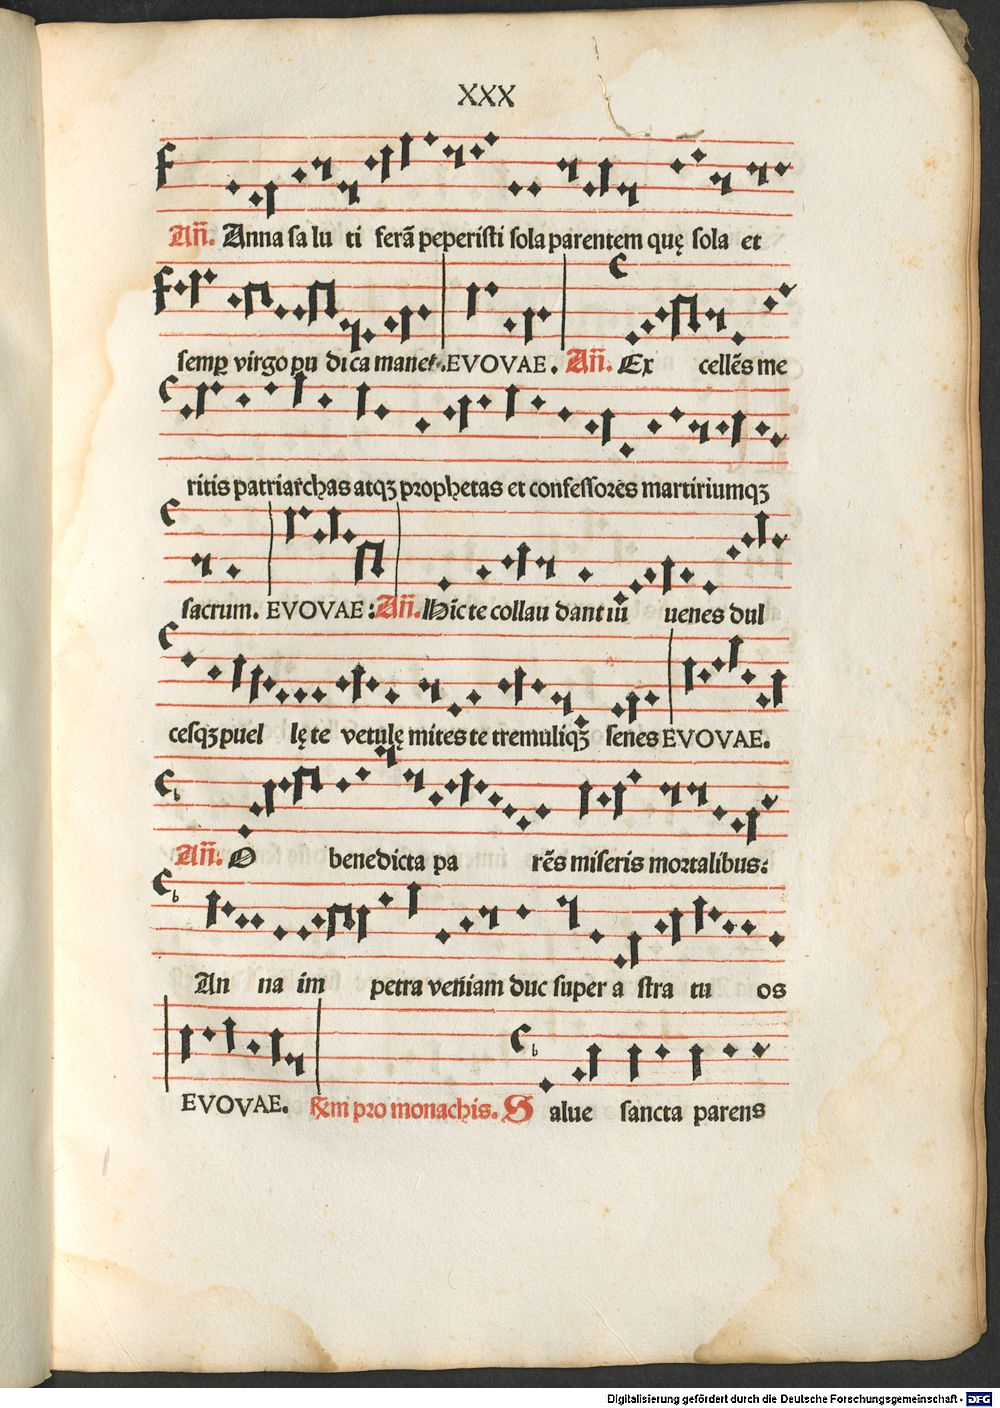 XXX
Añ. Anna sa lu ti ferā peperisti sola parentem quę sola et
semꝑ virgo pu di ca manet. EVOVAE. Añ. Ex cellēs me
ritis patriarchas atqꝫ prophetas et confessores martiriumqꝫ
sacrum. EVOVAE: Añ. Hic te collau dant iū uenes dul
cesqꝫ puel lę te vetulę mites te tremuliqꝫ senes EVOVAE.
Añ. O benedicta pa rēs miseris mortalibus:
An na im petra veniam duc super a stra tu os
EVOVAE. pro monachis. S alue sancta parens
Digitalisierung gefördert durch die Deutsche Forschungsgemeinschaft - DFG